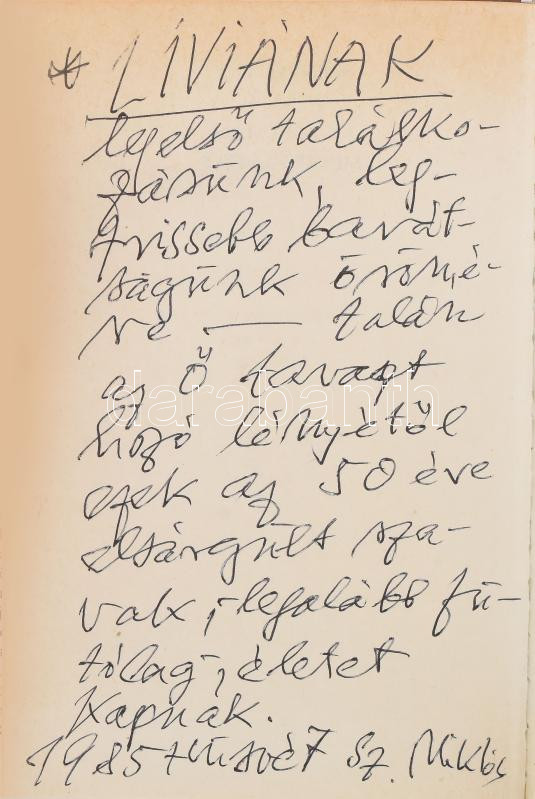 * LÍVIÁNAK
legelső találko-
zásunk, leg-
frissebb barát-
ságunk örömé-
re. — talán
az ő tavaszt
hozó lényétől
ezek az 50 éve
elsárgult sza-
vak, legalább fu-
tólag, életet
kapnak.
1985 húsvét Sz. Miklós
darabanth